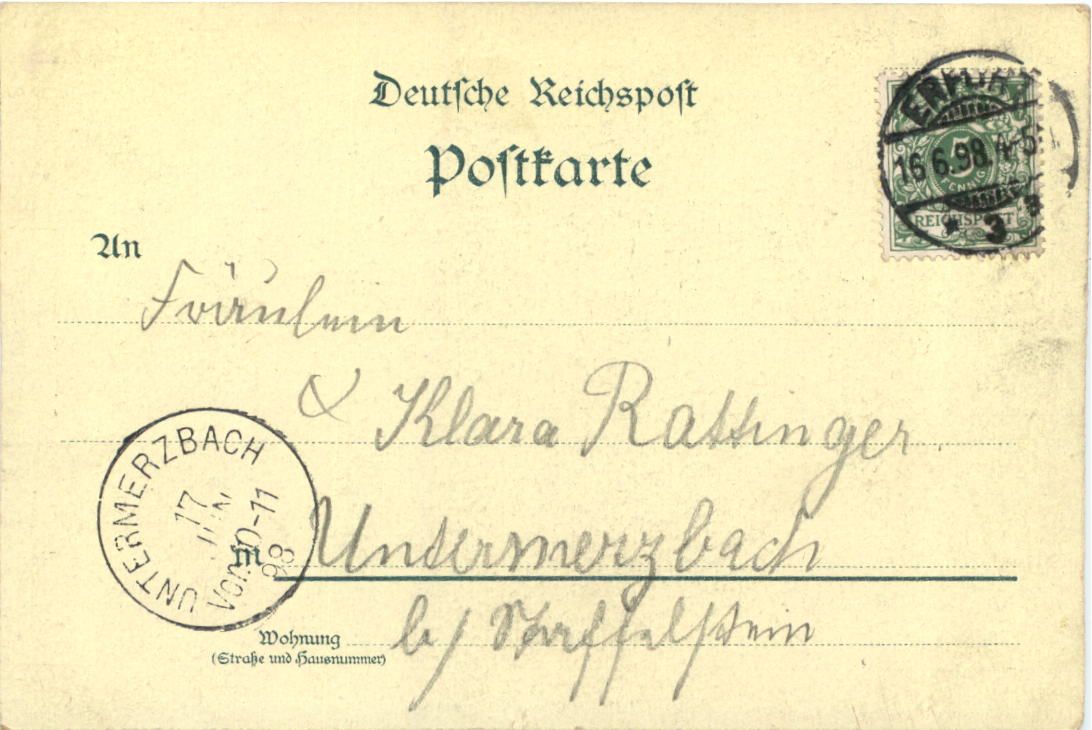 Deutsche Reichspost
Postkarte
ERFURT
16.6.98. 4-5
* 3
5
REICHSPOST
An
Fräulein
Klara Rattinger
in Untermerzbach
UNTERMERZBACH
17
JUN
Vor. 10-11
98
Wohnung
(Straße und Hausnummer)
b/ Staffelstein